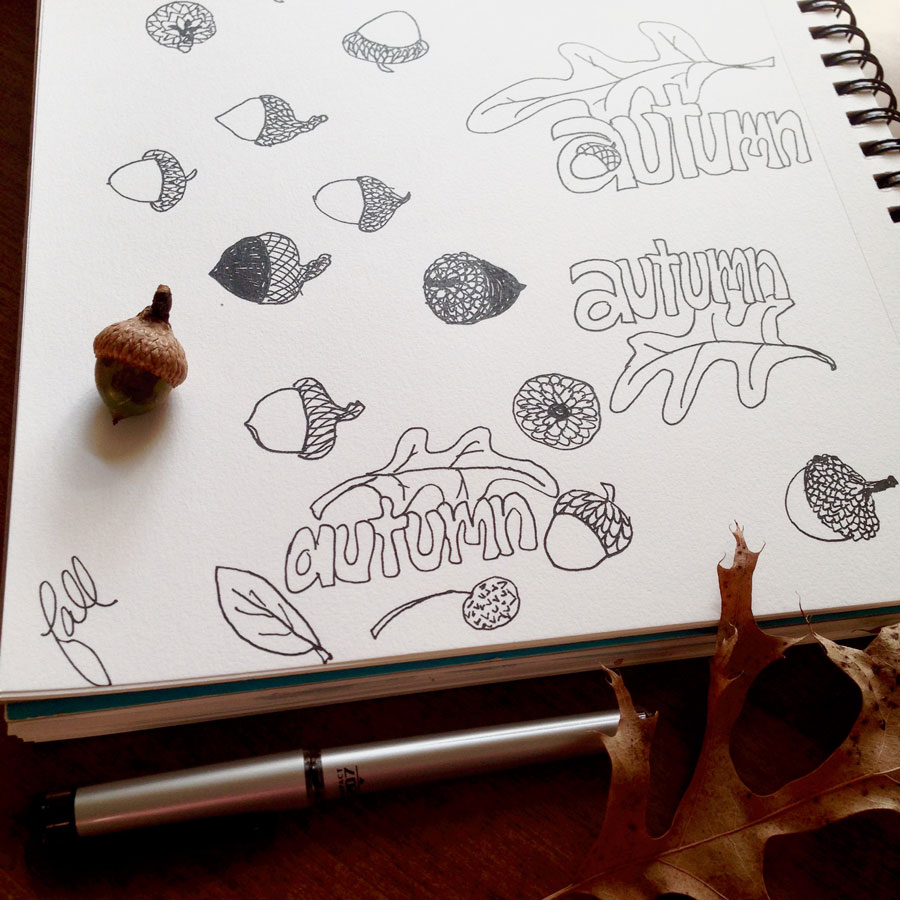 autumn
autumn
autumn
fall